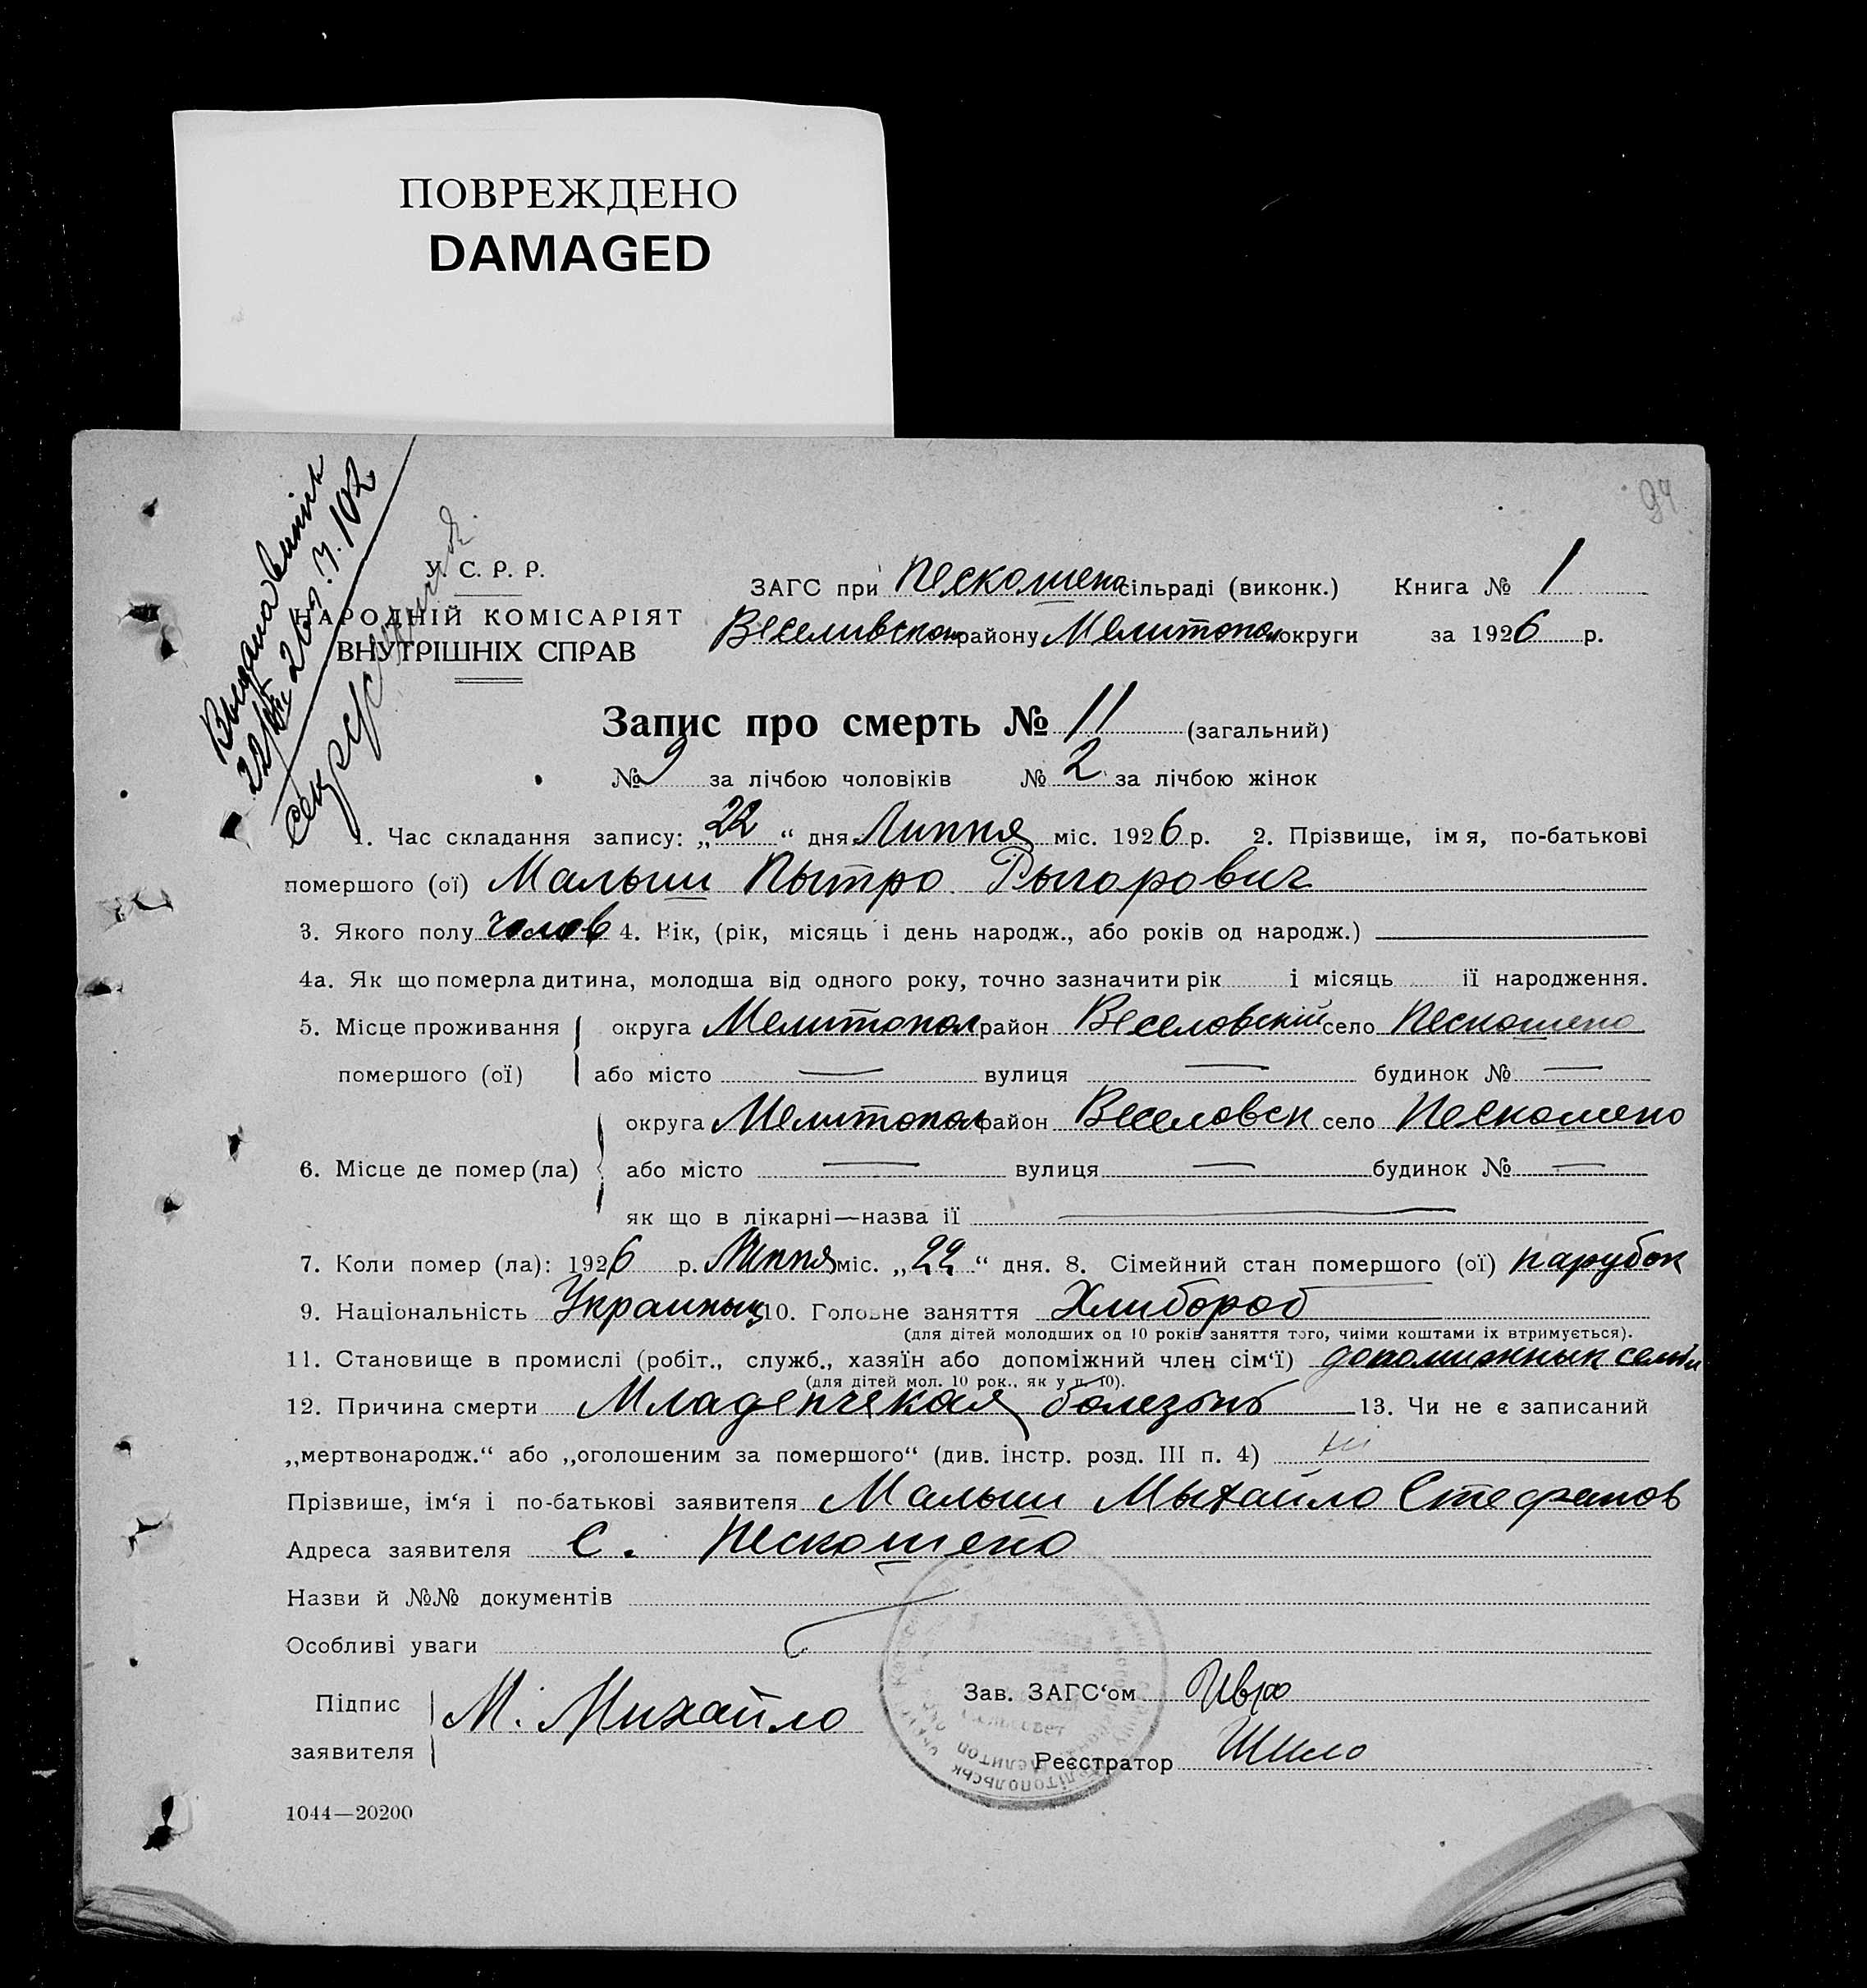 ПОВРЕЖДЕНО
DAMAGED
94
Выдана выпись
22/VII 26 р. ч. 102
У. С. Р. Р.
НАРОДНІЙ КОМІСАРІЯТ
ВНУТРІШНІХ СПРАВ
ЗАГС при Пескошено сільраді (виконк.) Книга № 1
Веселивском району Мелитопол округи за 1926 р.
Запис про смерть № 11 (загальний)
№ 9 за лічбою чоловіків № 2 за лічбою жінок
1. Час складання запису: „22“ дня Липня міс. 1926 р. 2. Прізвище, імя, по-батькові
помершого (ої) Малыш Пытро Рыгорович
3. Якого полу чолов 4. Вік, (рік, місяць і день народж., або років од народж.)
4а. Як що померла дитина, молодша від одного року, точно зазначити рік і місяць її народження.
5. Місце проживання округа Мелитопол район Веселовский село Пескошено
помершого (ої) або місто — вулиця — будинок № —
округа Мелитопол район Веселовск село Пескошено
6. Місце де помер (ла) або місто — вулиця — будинок № —
як що в лікарні—назва її —
7. Коли помер (ла): 1926 р. Липня міс. „22“ дня. 8. Сімейний стан помершого (ої) парубок
9. Національність Украиныц 10. Головне заняття Хлибороб
(для дітей молодших од 10 років заняття того, чиїми коштами їх втримується).
11. Становище в промислі (робіт., служб., хазяїн або допоміжний член сім‘ї) допомижнык семьи
(для дітей мол. 10 рок., як у п. 10).
12. Причина смерти Младенчекая болезьнь 13. Чи не є записаний
„мертвонародж.“ або „оголошеним за помершого“ (див. інстр. розд. III п. 4) ні
Прізвише, ім‘я і по-батькові заявителя Малыш Мыхайло Стефанов
Адреса заявителя С. Пескошено
Назви й №№ документів
Особливі уваги
Підпис заявителя М. Михайло
Зав. ЗАГС‘ом
Реєстратор Шило
1044—20200